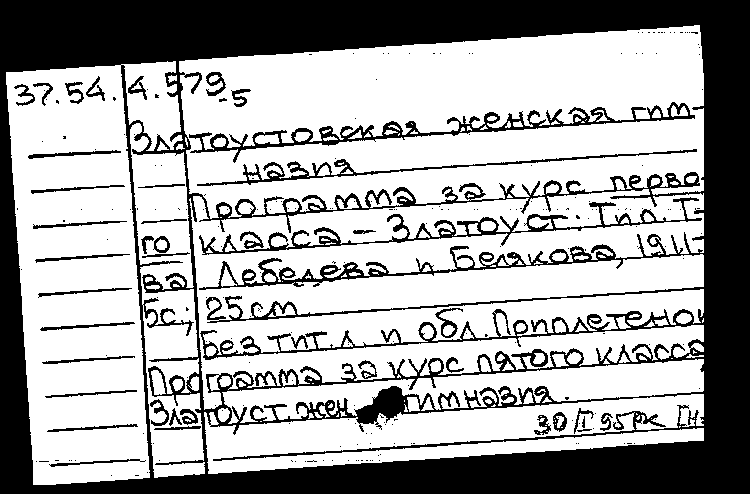 37.54.4.579-5
Златоустовская женская гим-
назия
Программа за курс перво-
го класса.- Златоуст: Тип. Т-
ва Лебедева и Белякова, 1911.-
5с.; 25см.
Без тит.л. и обл. Приплетено к
Программа за курс пятого класса,
Златоуст. жен. гимназия.
30/I 95 РК [Н-